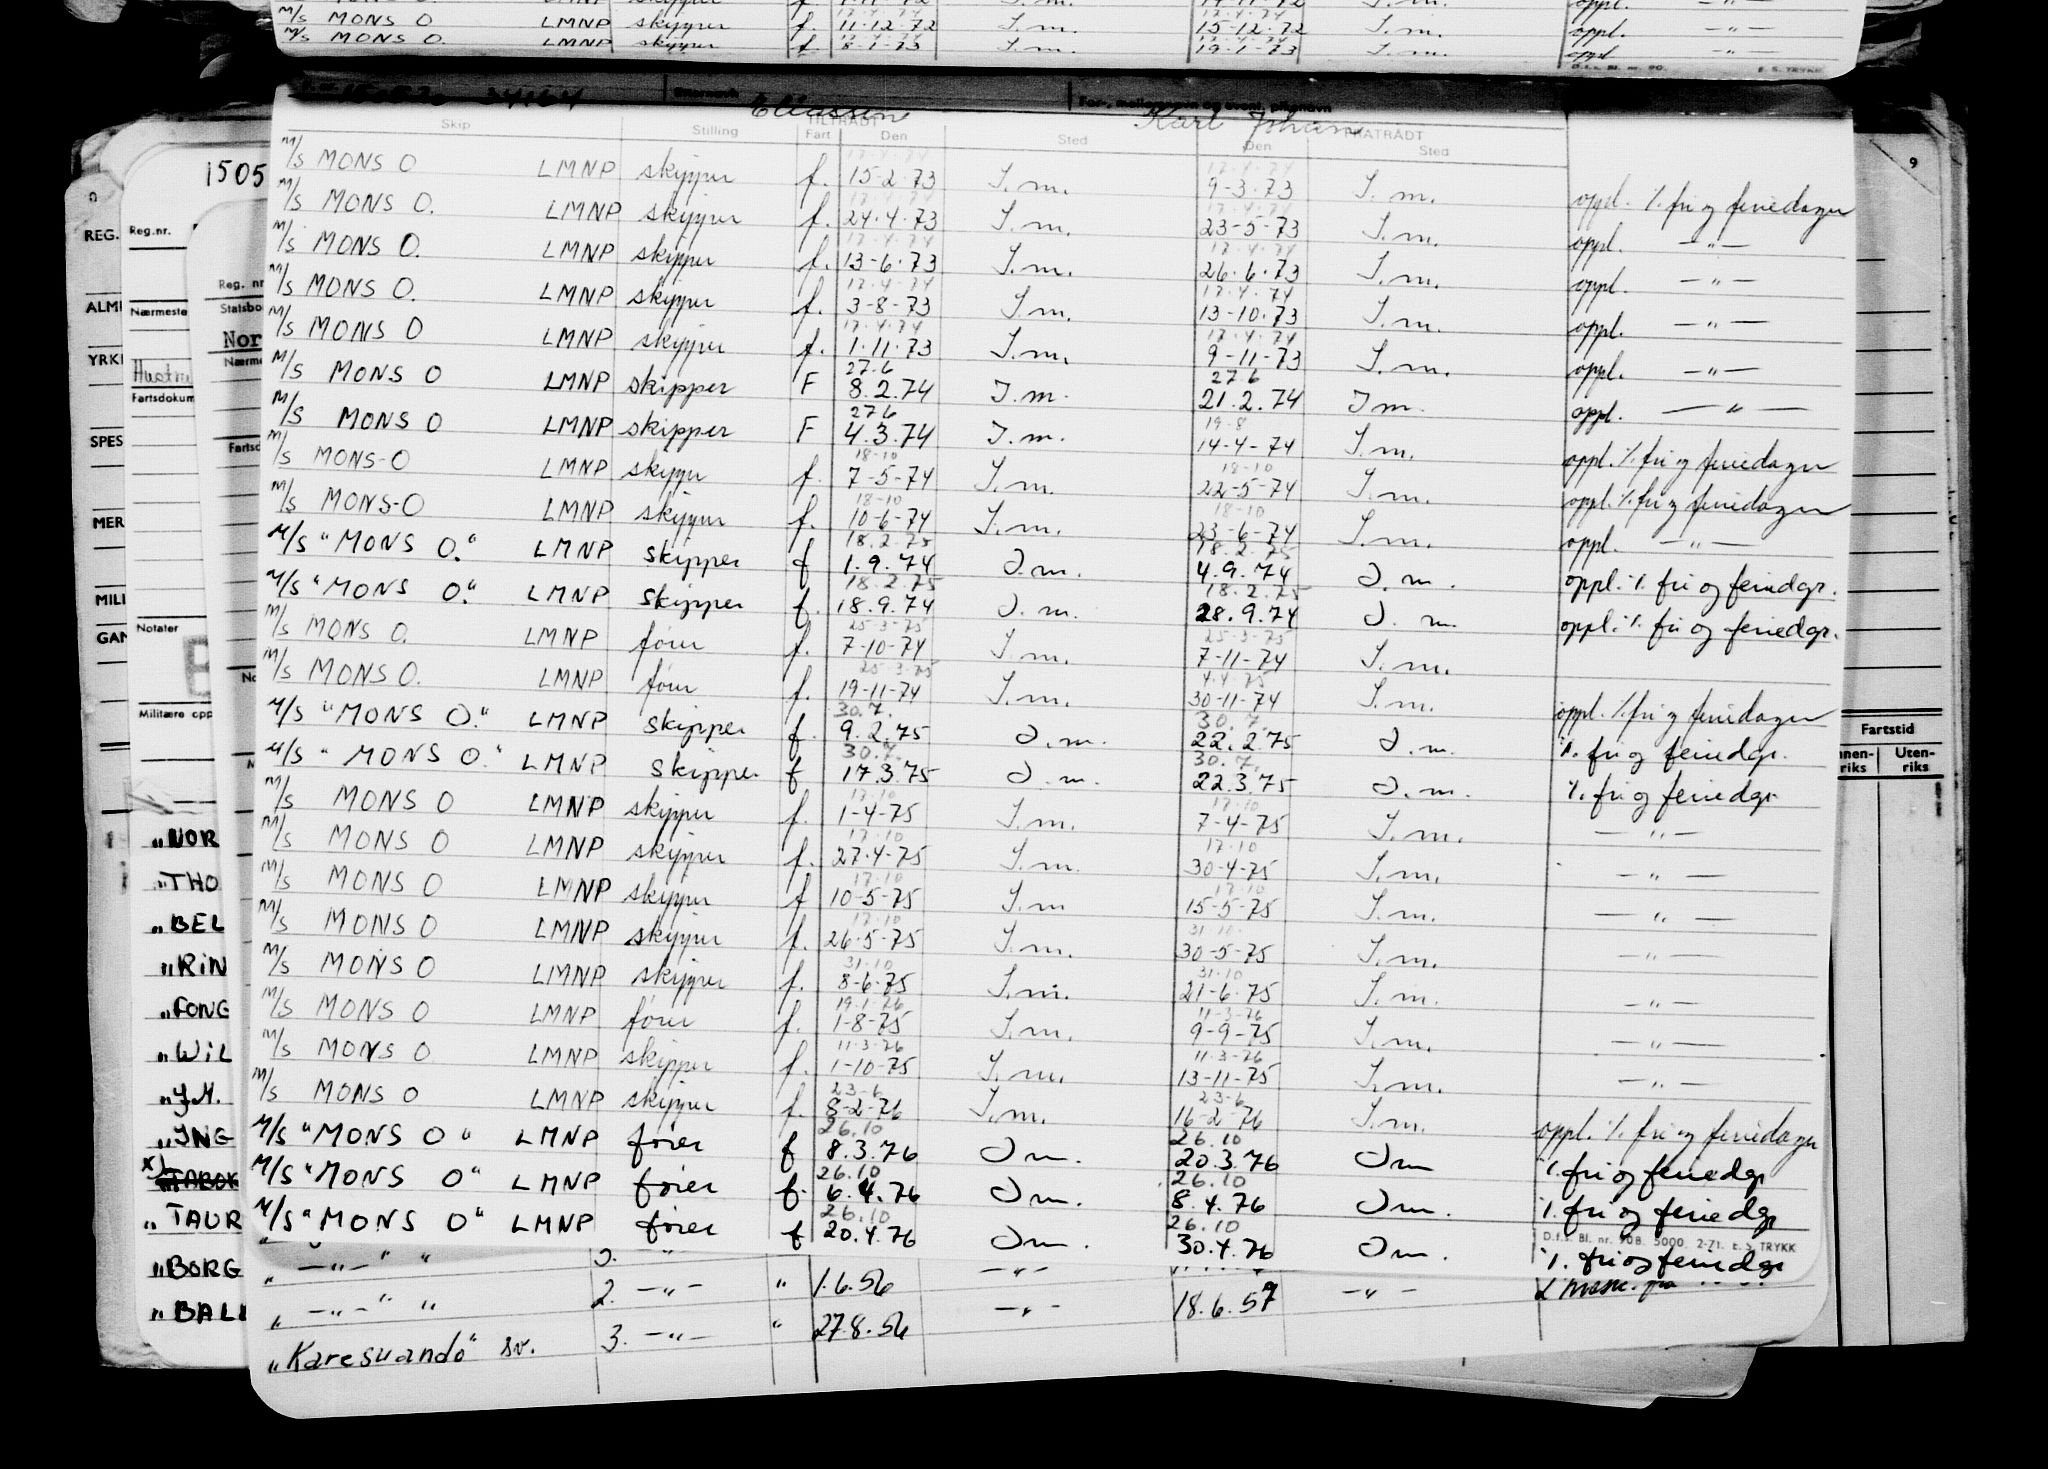 M/S MONS O LMNP skipper f. 11-12-72 S.m. 15-12-72 S.m. oppl. -"-
M/S MONS O. LMNP skipper f. 8-1-73 S.m. 19-1-73 S.m. oppl -"-
D.f.s. Bl. nr. 90. E. S. TRYKK
Etternavn Eliassen For-, mellomnavn og event. pikenavn Karl Johan
Skip Stilling TILTRÅDT Fart Den Sted FRATRÅDT Den Sted
M/S MONS O LMNP skipper f. 17.4.74 15-2-73 S.m. 17.4.74 9-3-73 S.m. oppl. ./. fri og feriedager
M/S MONS O. LMNP skipper f. 17.4.74 24.4.73 S.m. 17.4.74 23-5-73 S.m. oppl. -"-
M/S MONS O. LMNP skipper f. 17.4.74 13-6-73 S.m. 17.4.74 26.6.73 S.m. oppl. -"-
M/S MONS O. LMNP skipper f. 17.4.74 3-8-73 S.m. 17.4.74 13-10-73 S.m. oppl. -"-
M/S MONS O LMNP skipper f. 17.4.74 1.11.73 S.m. 17.4.74 9-11-73 S.m. oppl. -"-
M/S MONS O LMNP skipper F 27.6 8.2.74 I.m. 27.6 21.2.74 I m. oppl. -"-
M/S MONS O LMNP skipper F 27.6 4.3.74 I.m. 19-8 14-4-74 S.m. oppl. ./. fri og feriedager
M/S MONS-O LMNP skipper f. 18-10 7-5-74 S.m. 18-10 22-5-74 S.m. oppl. ./. fri og feriedager
M/S MONS-O LMNP skipper f. 18-10 10-6-74 S.m. 18-10 23-6-74 S.m. oppl. -"-
M/S "MONS O." LMNP skipper f 18.2.75 1.9.74 I.m. 18.2.75 4.9.74 I.m. oppl. ./. fri og feriedgr.
M/S "MONS O." LMNP skipper f. 18.2.75 18.9.74 I.m. 18.2.75 28.9.74 I.m. oppl. ./. fri og feriedgr.
M/S MONS O. LMNP fører f. 25-3-75 7-10-74 S.m. 25-3-75 7-11-74 S.m.
M/S MONS O. LMNP fører f. 25-3-75 19-11-74 S.m. 4.4.75 30-11-74 S.m. oppl. ./. fri og feriedager
M/S "MONS O." LMNP skipper f. 30.7. 9.2.75 I.m. 30.7. 22.2.75 I.m. ./. fri og feriedgr.
M/S "MONS O." LMNP skipper f 30.7. 17.3.75 I.m. 30.7. 22.3.75 I.m. ./. fri og feriedgr
M/S MONS O LMNP skipper f. 17.10 1-4-75 S.m. 17.10 7-4-75 S.m. -"-
M/S MONS O LMNP skipper f. 17.10 27.4-75 S.m. 17.10 30-4-75 S.m. -"-
M/S MONS O LMNP skipper f 17.10 10-5-75 S.m 17.10 15-5-75 S.m. -"-
M/S MONS O LMNP skipper f. 17.10 26.5-75 S.m. 31.10. 30-5-75 S.m. -"-
M/S MONS O LMNP skipper f. 31.10 8-6-75 S.m. 31.10 21-6-75 S.m. -"-
M/S MONS O LMNP fører f. 19.1-76 1-8-75 S.m. 11-3-76 9-9-75 S.m. -"-
M/S MONS O LMNP skipper f. 11-3-76 1-10-75 S.m. 11-3-76 13-11-75 S.m. -"-
M/S MONS O LMNP skipper f. 23-6 8-2-76 S.m. 23-6 16-2-76 S.m. oppl. ./. fri og feriedager
M/S "MONS O" LMNP fører f 26.10 8.3.76 I m. 26.10 20.3.76 I m ./. fri og feriedgr
M/S "MONS O" LMNP fører f. 26.10 6.4.76 I m. 26.10 8.4.76 I m. ./. fri og feriedgr
M/S "MONS O" LMNP fører f 26.10 20.4.76 I m. 26.10 30.4.76 I m ./. fri og feriedgr
D.f.s. Bl. nr. 90B. 5000. 2-71. E. S. TRYKK
" -"- " 2. -"- " 1.6.56 -"-
" -"- " " 18.6.57 -"-
"Karesuando" sv. 3. -"- " 27.8.56 -"-
1505
REG.
Reg.nr.
Reg. nr
Statsbo
Nor
Nærme
ALM
Nærmeste
YRK
Hustru
Fartsdokum
SPES
MER
MILI
GAN
Notater
Militære opp
9
Fartstid
nnen-riks Uten-riks
"NOR
"THO
"BEL
"RIN
"FONG
"WIL
"J.M.
"ING
x) "TABOR
"TAUR
"BORG
"BALI